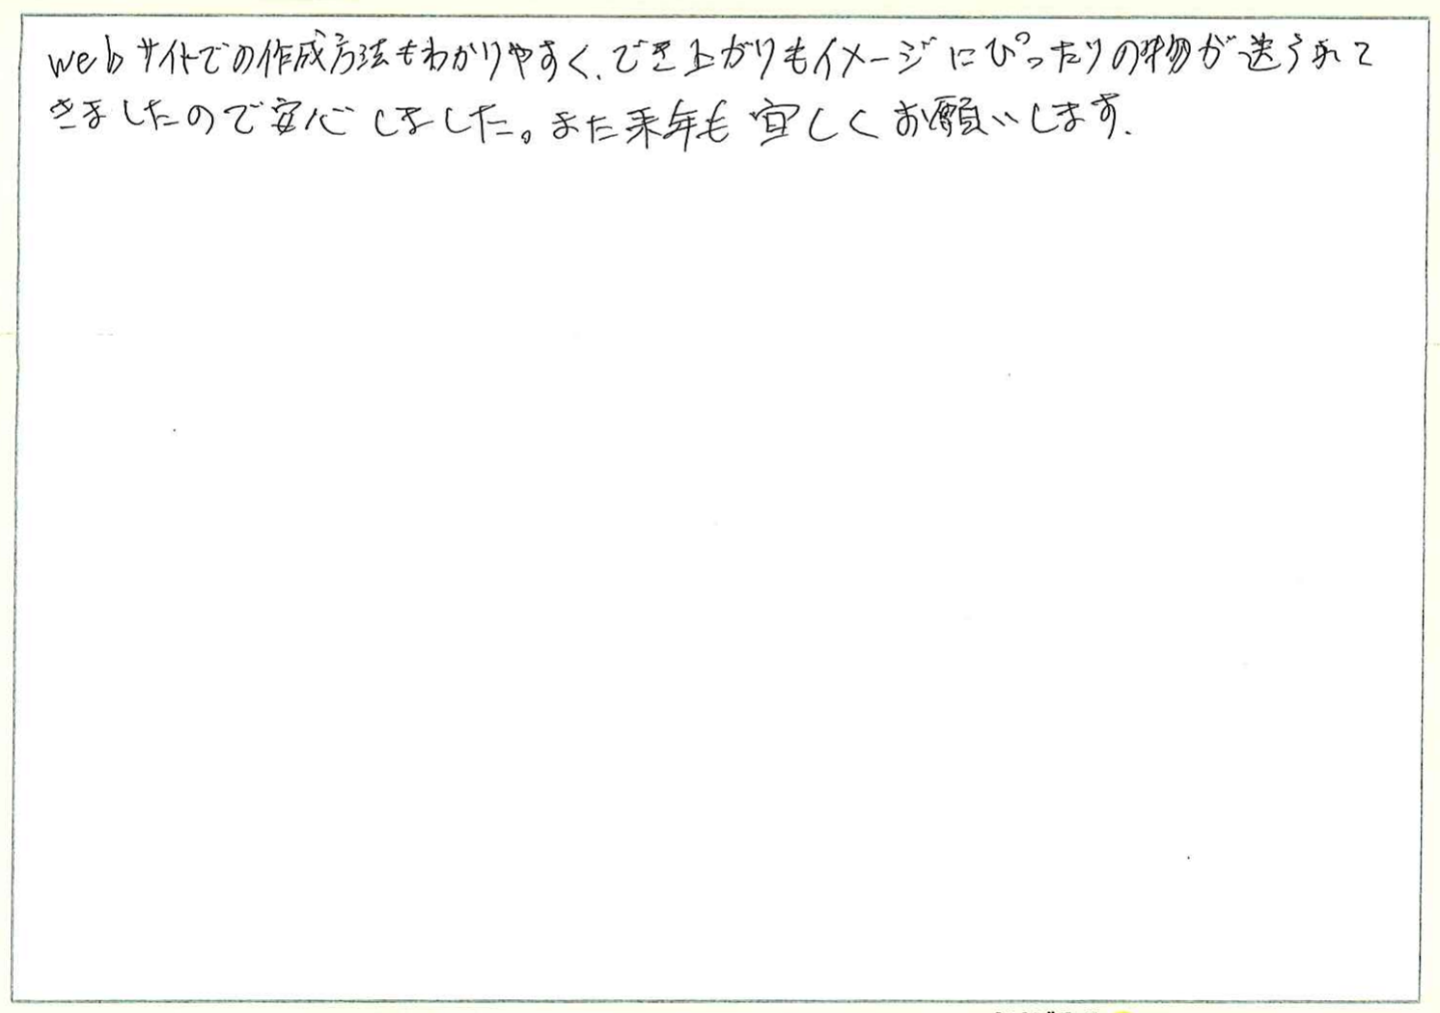 webサイトでの作成方法もわかりやすく、でき上がりもイメージにぴったりの物が送られて
きましたので安心しました。また来年も宜しくお願いします.